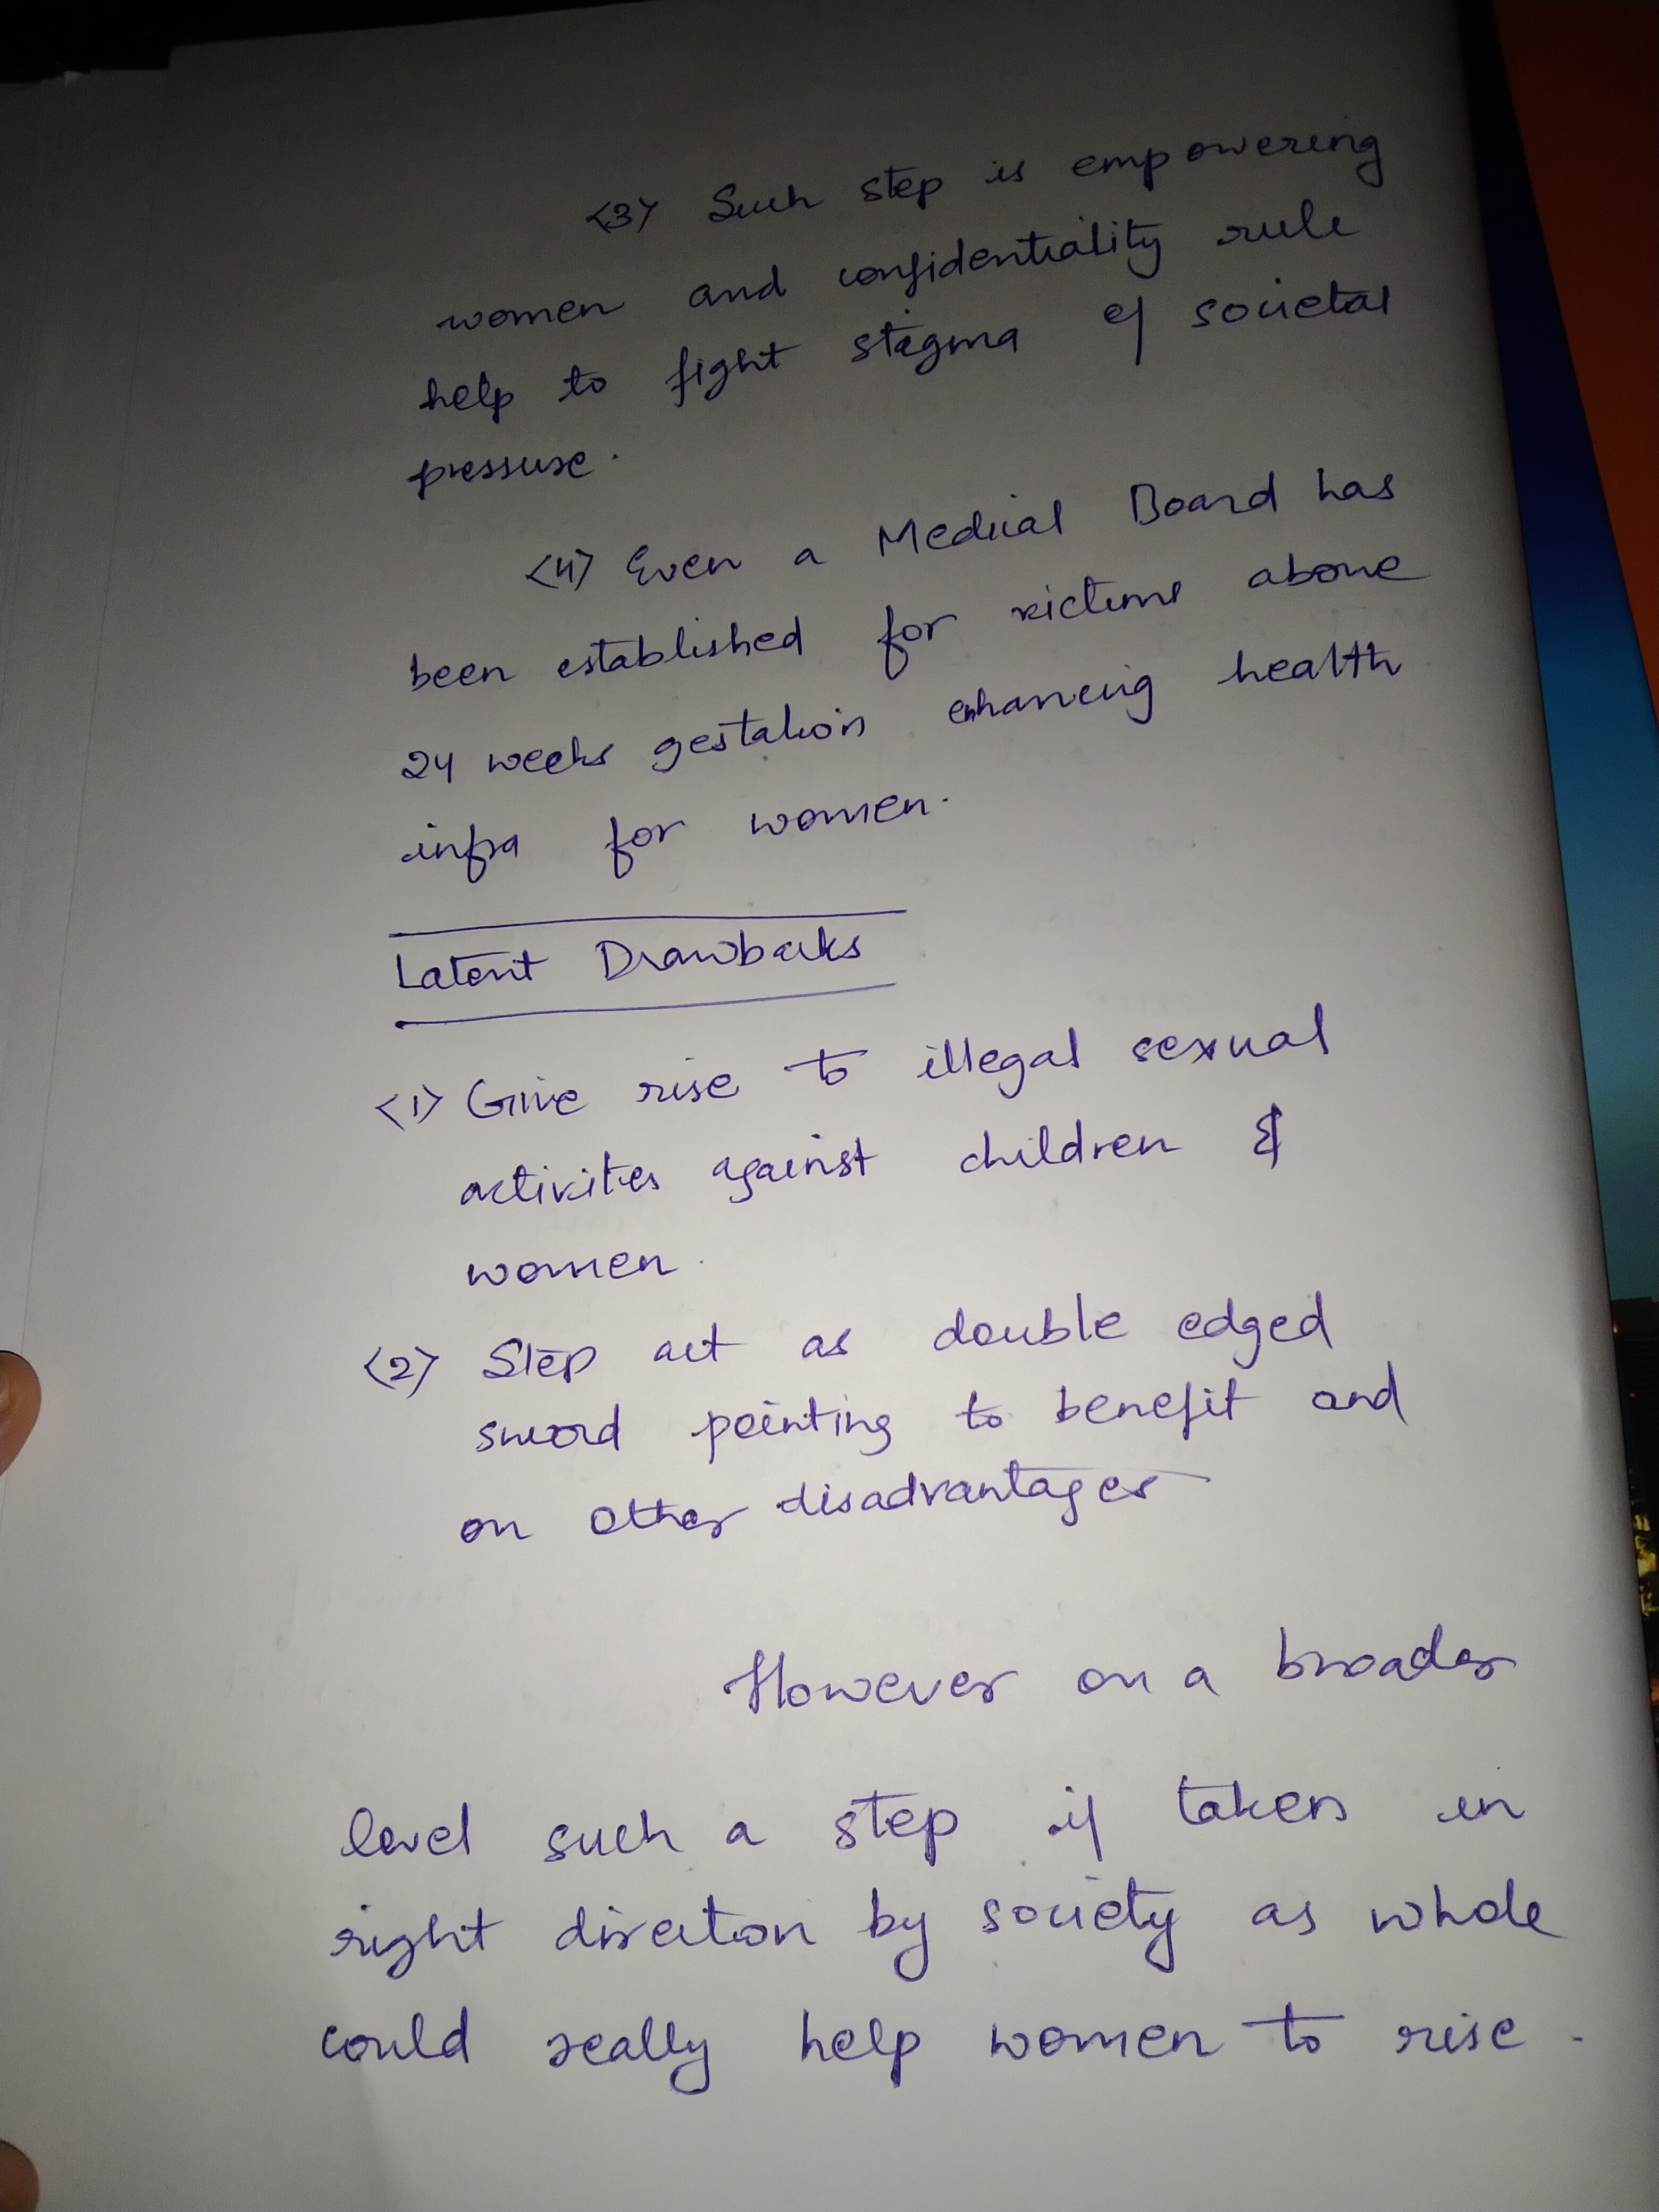 <3> Such step is empowering
women and confidentiality rule
help to fight stigma of societal
pressure.
<4> Even a Medical Board has
been established for victims above
24 weeks gestation enhancing health
infra for women.
Latent Drawbacks
<1> Give rise to illegal sexual
activities against children &
women.
<2> Step act as double edged
sword pointing to benefit and
on other disadvantages
However on a broader
level such a step if taken in
right direction by society as whole
could really help women to rise.